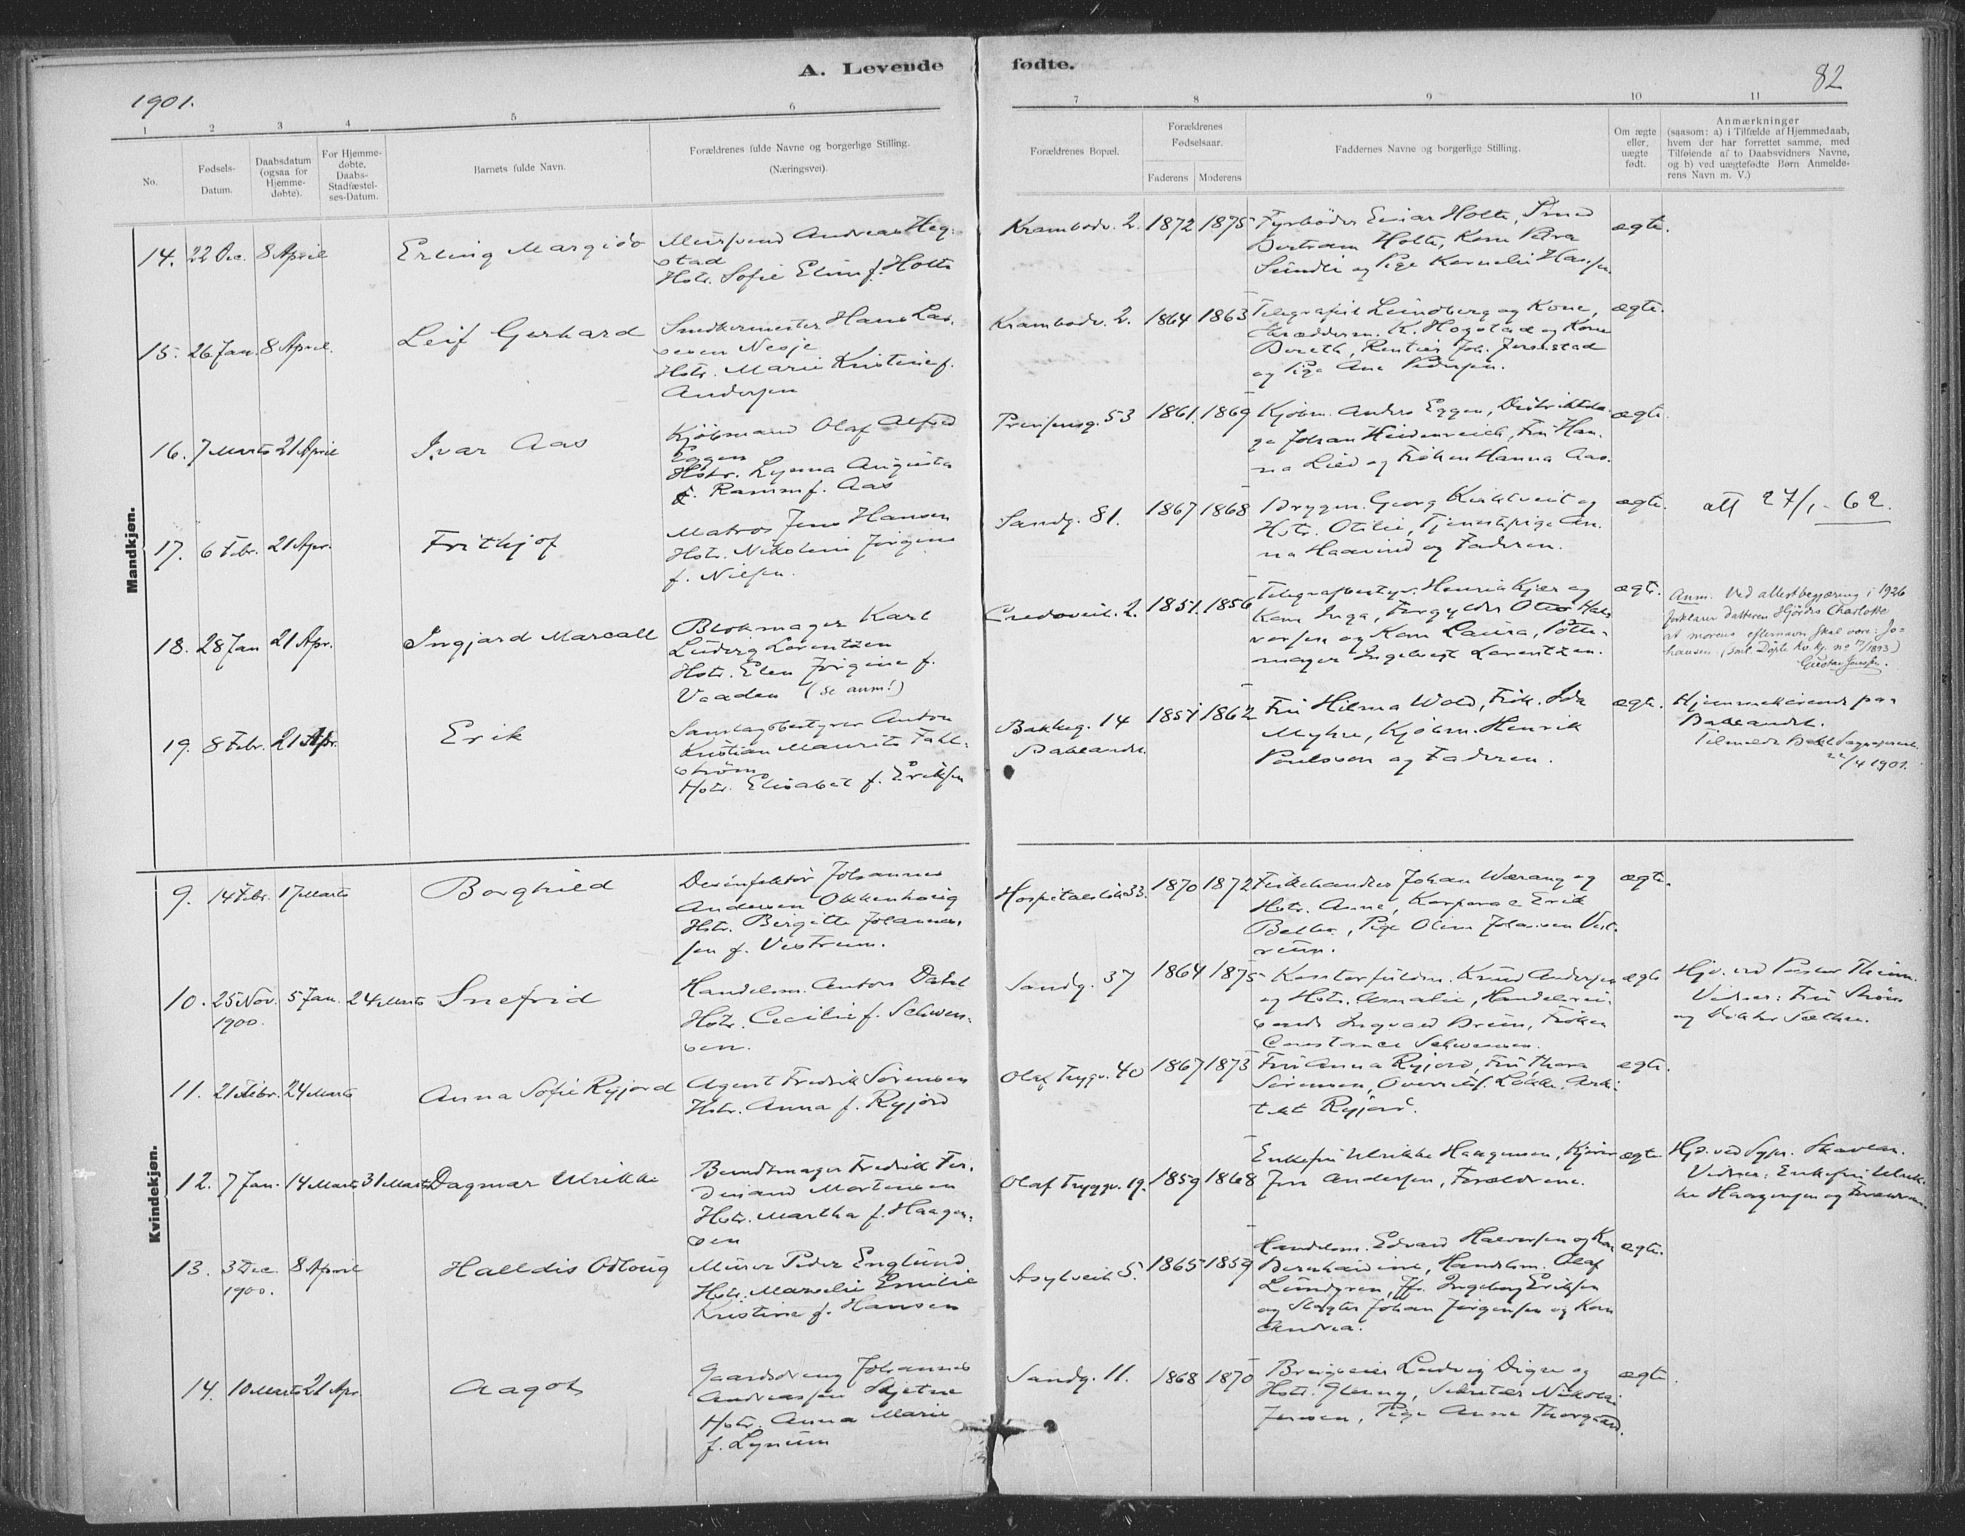 A. Levende fødte.
82
1901.
1 2 3 4 5 6 7 8 9 10 11
No.
Fødsels-Datum.
Daabsdatum (ogsaa for Hjemmedøbte).
For Hjemmedøbte, Daabs-Stadfæstelses-Datum.
Barnets fulde Navn.
Forældrenes fulde Navne og borgerlige Stilling.
(Næringsvei).
Forældrenes Bopæl.
Forældrenes Fødselsaar.
Faderens Moderens
Faddernes Navne og borgerlige Stilling.
Om ægte eller uægte født.
Anmærkninger
(saasom: a) i Tilfælde af Hjemmedaab,
hvem der har forrettet samme, med
Tilføiende af to Daabsvidners Navne,
og b) ved uægtefødte Børn Anmelde-
rens Navn m. V.)
Mandkjøn.
14. 22 Dec. 8 April Erling Margido
Mursvend Andreas Heg-
stad
Hstr. Sofie Elise f. Holte
Krambodv. 2. 1872 1875
Fyrbøder Einar Holte, Smed
Bertram Holte, Kone Petra
Sundli og Pige Kornelie Hansen
ægte.
15. 26 Jan. 8 April. Leif Gerhard
Snedkermester Hans Las-
sesen Nesje
Hstr. Marie Kristine f.
Andersen
Krambodv. 2. 1864 1863
Telegrafist Lundberg og Kone,
Skrædderm. K. Hogstad og Kone
Bereth, Rentier Joh. Jernstad
og Pige Ane Pedersen.
ægte.
16. 7 Marts 21 April Ivar Aas
Kjøbmand Olaf Alfred
Eggen
Hstr. Lynna Augusta
E. Ramm f. Aas
Prinsensg. 53 1861. 1869
Kjøbm. Anders Eggen, Distriktslæ-
ge Johan Heidenreich, Fru Han-
na Lied og Frøken Hanna Aas.
ægte.
17. 6 Febr. 21 Apr. Frithjof
Matros Jens Hansen
Hstr. Nikoline Jørgine
f. Nielsen.
Sandg. 81. 1867 1868
Bryggem. Georg Kirkhveit og
Hstr. Otilie, Tjenestpige An-
na Haavind og Faderen.
ægte.
att 27/1 - 62.
18. 28 Jan 21 Apr. Ingjard Marcall
Blokmager Karl
Ludvig Lorentzen
Hstr. Elen Jørgine f.
Vaaden (se anm!)
Credoveit. 2. 1851. 1856
Telegrafbestyr. Henrik Kjær og
Kone Inga, Forgylder Otto Hal-
vorsen og Kone Laura, Potte-
mager Ingebrigt Lorentzen.
ægte.
Anm. Ved attestbegjæring i 1926
forklarer datteren Hjørdis Charlotte
at morens efternavn skal være: Jo-
hansen. (sml. Døpte Kv. kj. no 17/1893)
Gustav Jenssen.
19. 8 Febr. 21 Apr. Erik
Samlagsbestyrer Anton
Kristian Maurits Fahl-
strøm
Hstr. Elisabet f. Eriksen
Bakkeg. 14
Baklandet. 1857 1862
Fru Hilma Wold, Frk. Ida
Myhre, Kjøbm. Henrik
Poulsson og Faderen.
ægte.
Hjemmehørende paa
Baklandet.
Tilmeldt Bakl. Sognepræst
22/4 1901.
Kvindekjøn.
9. 14 Febr. 17 Marts Borghild
Desinfektør Johannes
Andersen Okkenhaug
Hstr. Birgitte Johannes-
sen f. Vistrum.
Hospitalsløk. 33. 1870 1872
Fiskehandler Johan Wærang og
Hstr. Anne, Korporal Erik
Balbo, Pige Oline Johansen Vest-
rum.
ægte.
10. 25 Nov. 1900. 5 Jan. 24 Marts Snefrid
Handelsm. Anton Dahl
Hstr. Cecilie f. Schwen-
sen.
Sandg. 37 1864 1875
Kontorfuldm. Knud Andersen
og Hstr. Amalie, Handelsrei-
sende Ingvald Bruun, Frøken
Constance Schwensen.
ægte
Hjd. ved Pastor Thiim.
Vidner: Fru Strøm
og Doktor Sæther.
11. 21 Febr. 24 Marts Anna Sofie Ryjord
Agent Fredrik Sørensen
Hstr. Anna f. Ryjord
Olaf Trygv. 40 1867 1873
Fru Anna Ryjord, Fru Thora
Sørensen, Overretsf. Løkke, Arki-
tekt Ryjord.
ægte.
12. 7 Jan. 14 Marts 31 Marts Dagmar Ulrikke
Bundtmager Fredrik Fer-
dinand Mortensen
Hstr. Martha f. Haagen-
sen
Olaf Tryggv. 19. 1859 1868
Enkefru Ulrikke Haagensen, Kjører
Jon Andersen, Forældrene.
ægte.
Hjd. ved Sygepl. Skavlan.
Vidner: Enkefru Ulrik-
ke Haagensen og Forældrene.
13. 3 Dec. 1900. 8 April Halldis Odlaug
Murer Peder Englund
Hstr. Marselie Emilie
Kristine f. Hansen
Asylveit. 5. 1865 1859
Handelsm. Edvard Halvorsen og Kone
Bernhardine, Handelsm. Olaf
Lundgren, Jfr. Ingeborg Eriksen
og Slagter Johan Jørgensen og Kone
Andrea.
ægte.
14. 10 Marts 21 Apr. Aagot
Gaardsdreng Johannes
Andreassen Skjetne
Hstr. Anna Marie
f. Lynum
Sandg. 11. 1868 1870
Brolægger Ludvig Digre og
Hstr. Gurine, Sekretær Nikolai
Jensen, Pige Anne Thorgaard.
ægte.